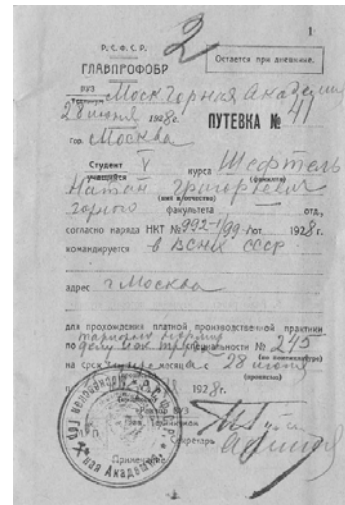 1
2
Р.С.Ф.С.Р.
ГЛАВПРОФОБР
Остается при дневнике.
ВУЗ Моск Горная Академия
Техникум
28 июня 1928г. ПУТЕВКА № 41
гор. Москва
Студент V курса Шефтель
учащийся (фамилия)
Натан Григорьевич
(имя и отчество)
горного факультета — отд.,
согласно наряда НКТ № 992-1/99 от 1928г.
командируется в ВСНХ СССР
адрес г Москва
для прохождения платной производственной практики
по специальности № 245
(по номенклатуре)
на срок месяца с 28 июня
(прописью)
1928г.
Ректор ВУЗ
Зав. Техникумом
Секретарь
Примечание
ная Академия